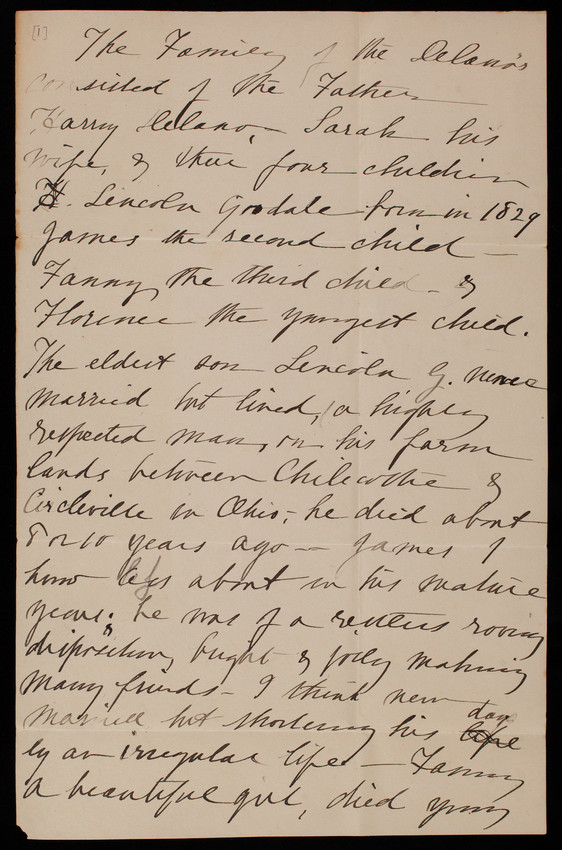 [1]
The Family of the Delano's
consisted of the Father
Harry Delano, - Sarah his
wife, & their four children
H. Lincoln Goodale born in 1829
James the second child -
Fanny the third child - &
Florence the youngest child.
The eldest son Lincoln G. never
married but lived, a highly
respected man, on his farm
lands between Chilecothe &
Circleville in Ohio; - he died about
8 or 10 years ago - James I
know about in his mature
years; he was of a restless roving
disposition, bright & jolly making
many friends - I think never
married but shortening his days
by an irregular life - Fanny
a beautiful girl, died young